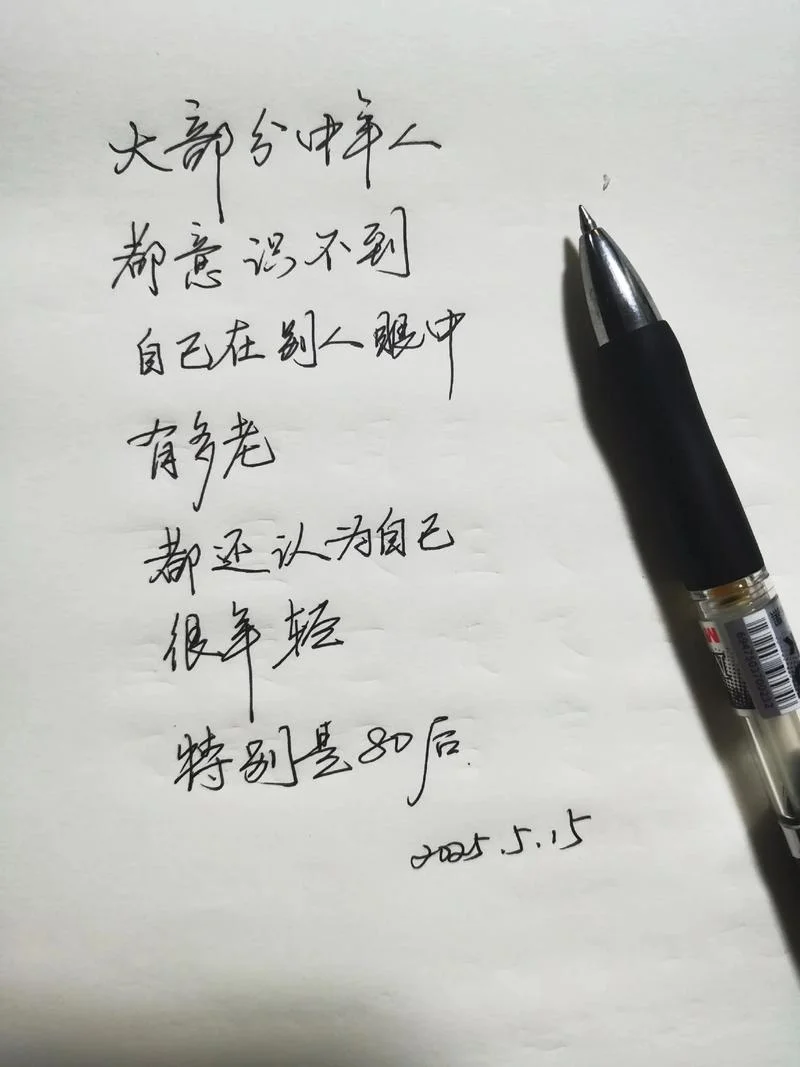 大部分中年人
都意识不到
自己在别人眼中
有多老
都还认为自己
很年轻
特别是80后
2025.5.15